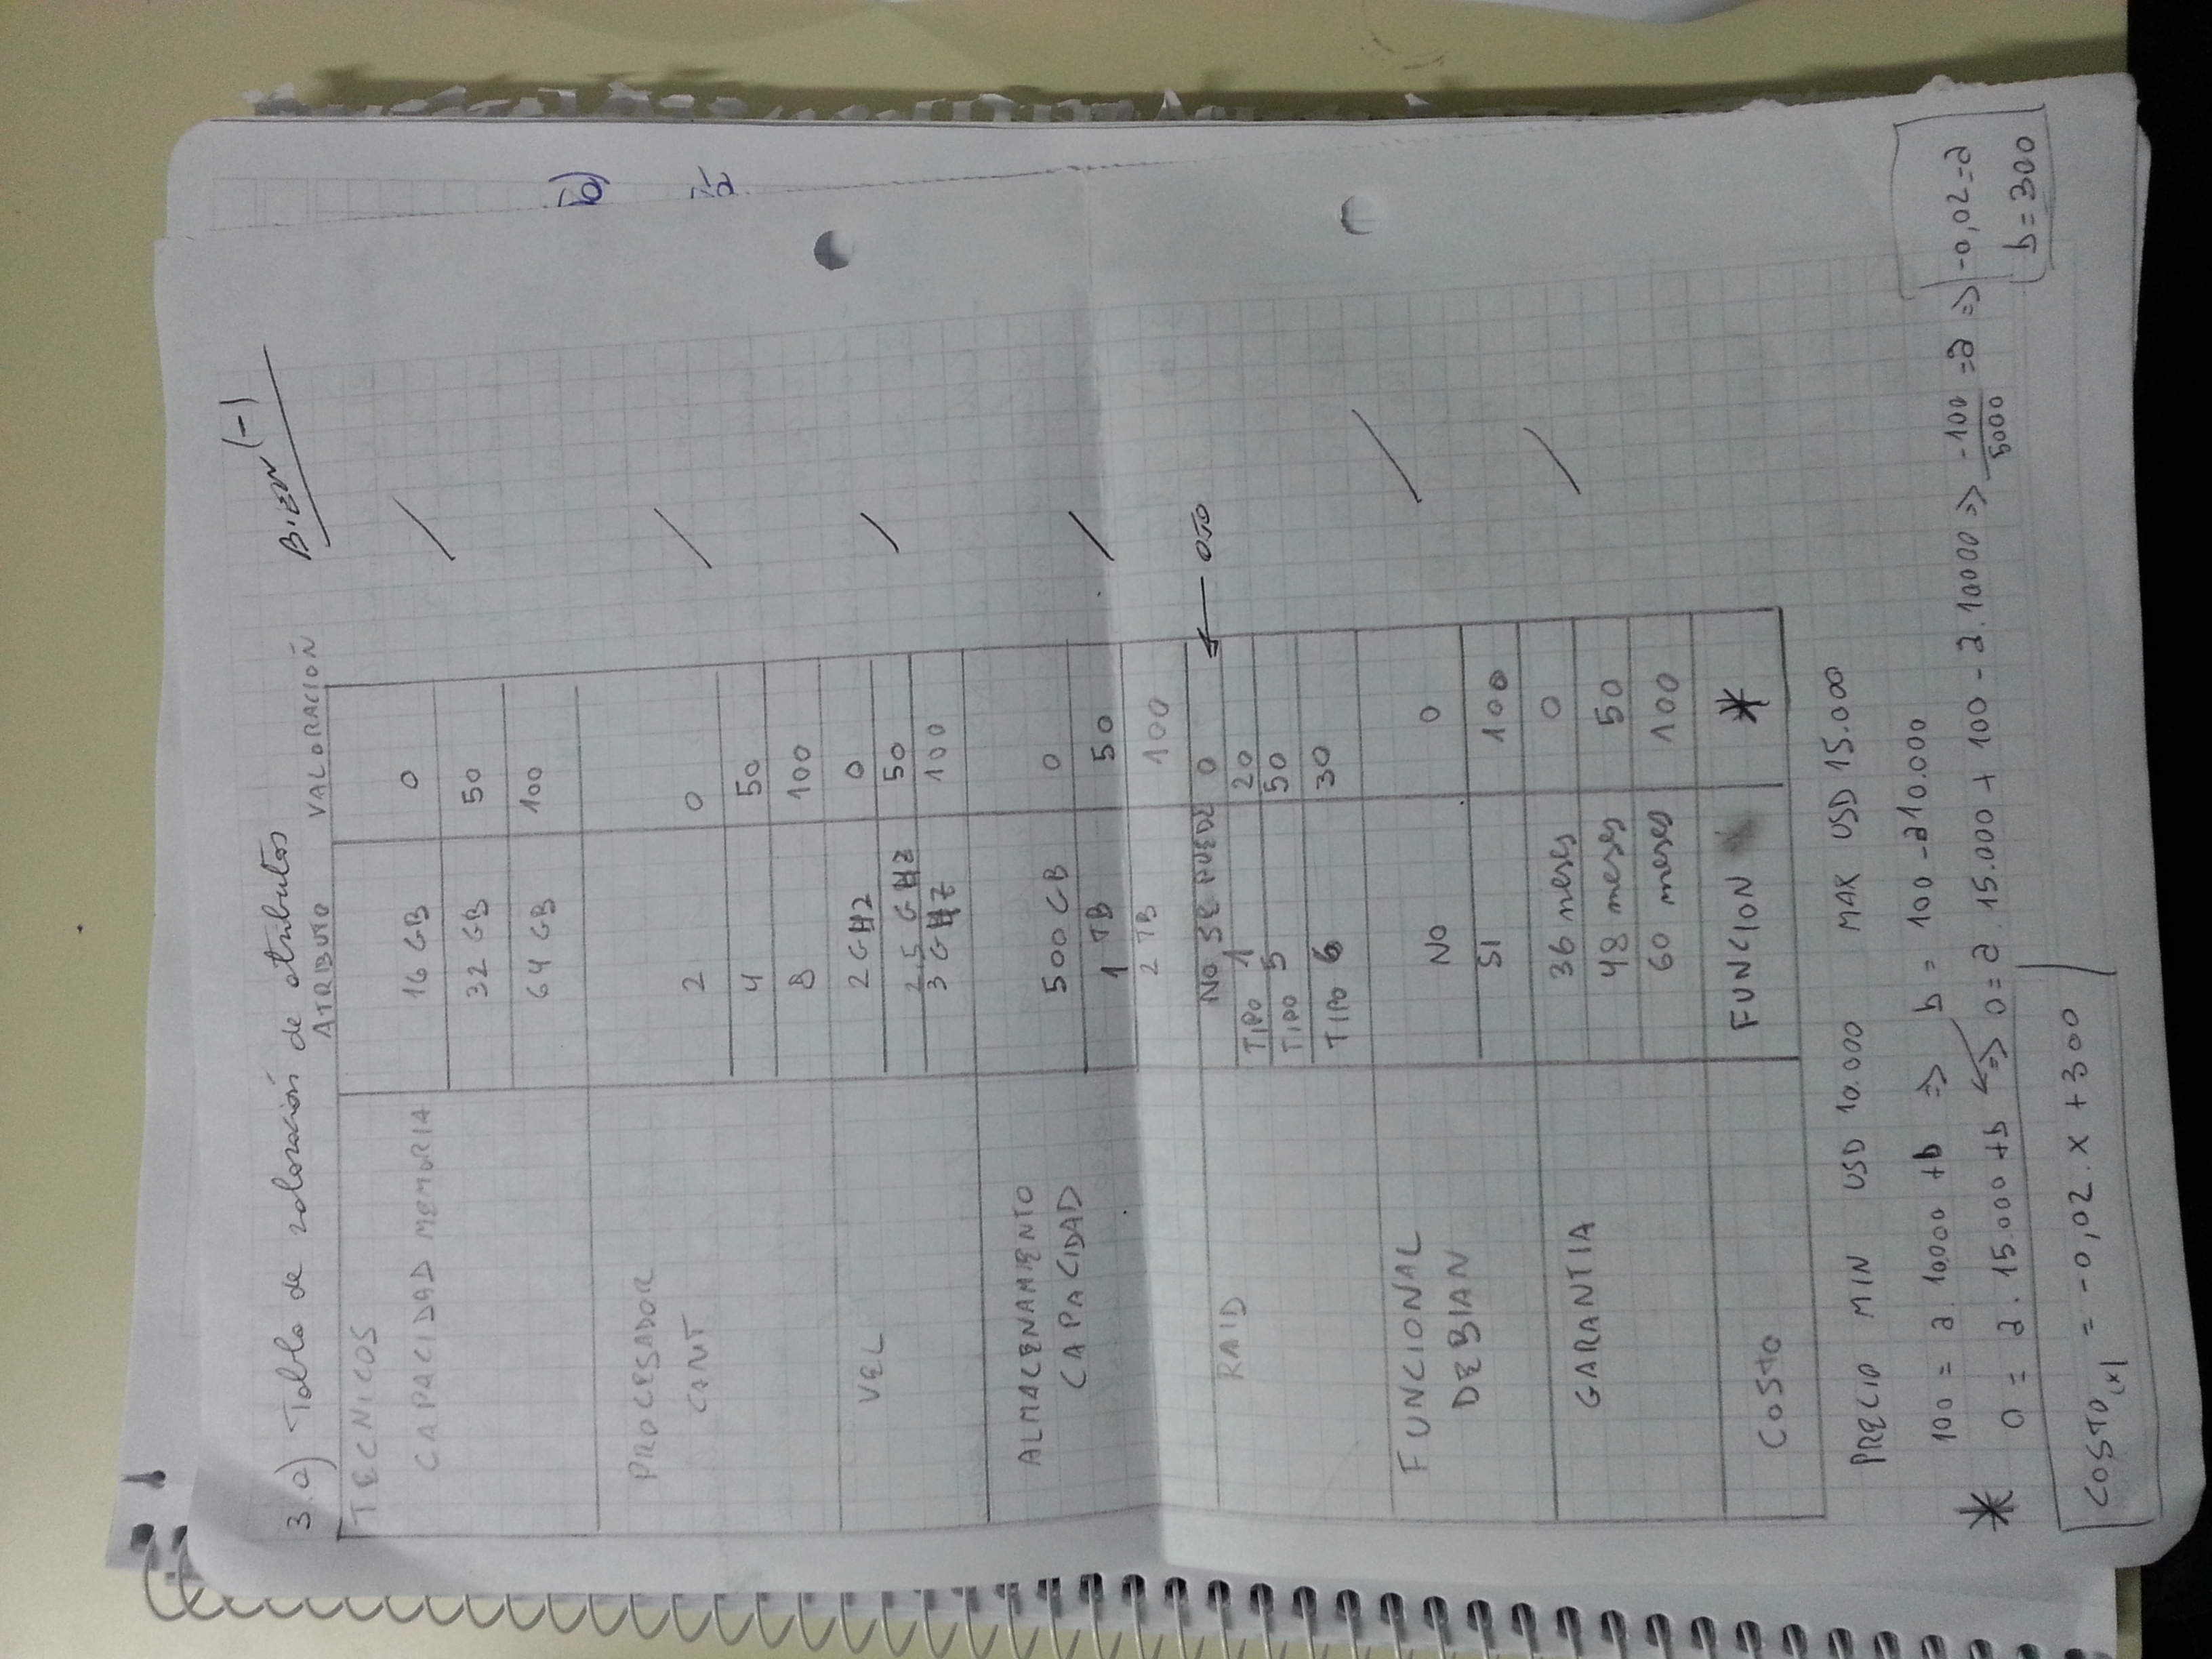 3.a) Tabla de valoración de atributos
BIEN (-)
ATRIBUTO VALORACIÓN
TECNICOS
CAPACIDAD MEMORIA 16 GB 0
32 GB 50
64 GB 100
PROCESADOR
CANT 2 0
4 50
8 100
VEL 2 GHZ 0
2,5 GHZ 50
3 GHZ 100
ALMACENAMIENTO
CAPACIDAD 500 GB 0
1 TB 50
2 TB 100
RAID NO SE PUEDE 0 ← OJO
TIPO 1 20
TIPO 5 50
TIPO 6 30
FUNCIONAL
DEBIAN NO 0
SI 100
GARANTIA 36 meses 0
48 meses 50
60 meses 100
COSTO FUNCION *
PRECIO MIN USD 10.000 MAX USD 15.000
100 = a.10.000 + b => b = 100 - a10.000
* 0 = a.15.000 + b => 0 = a.15.000 + 100 - a.10000 => -100/5000 = a => -0,02 = a
b = 300
COSTO(x) = -0,02.x + 300